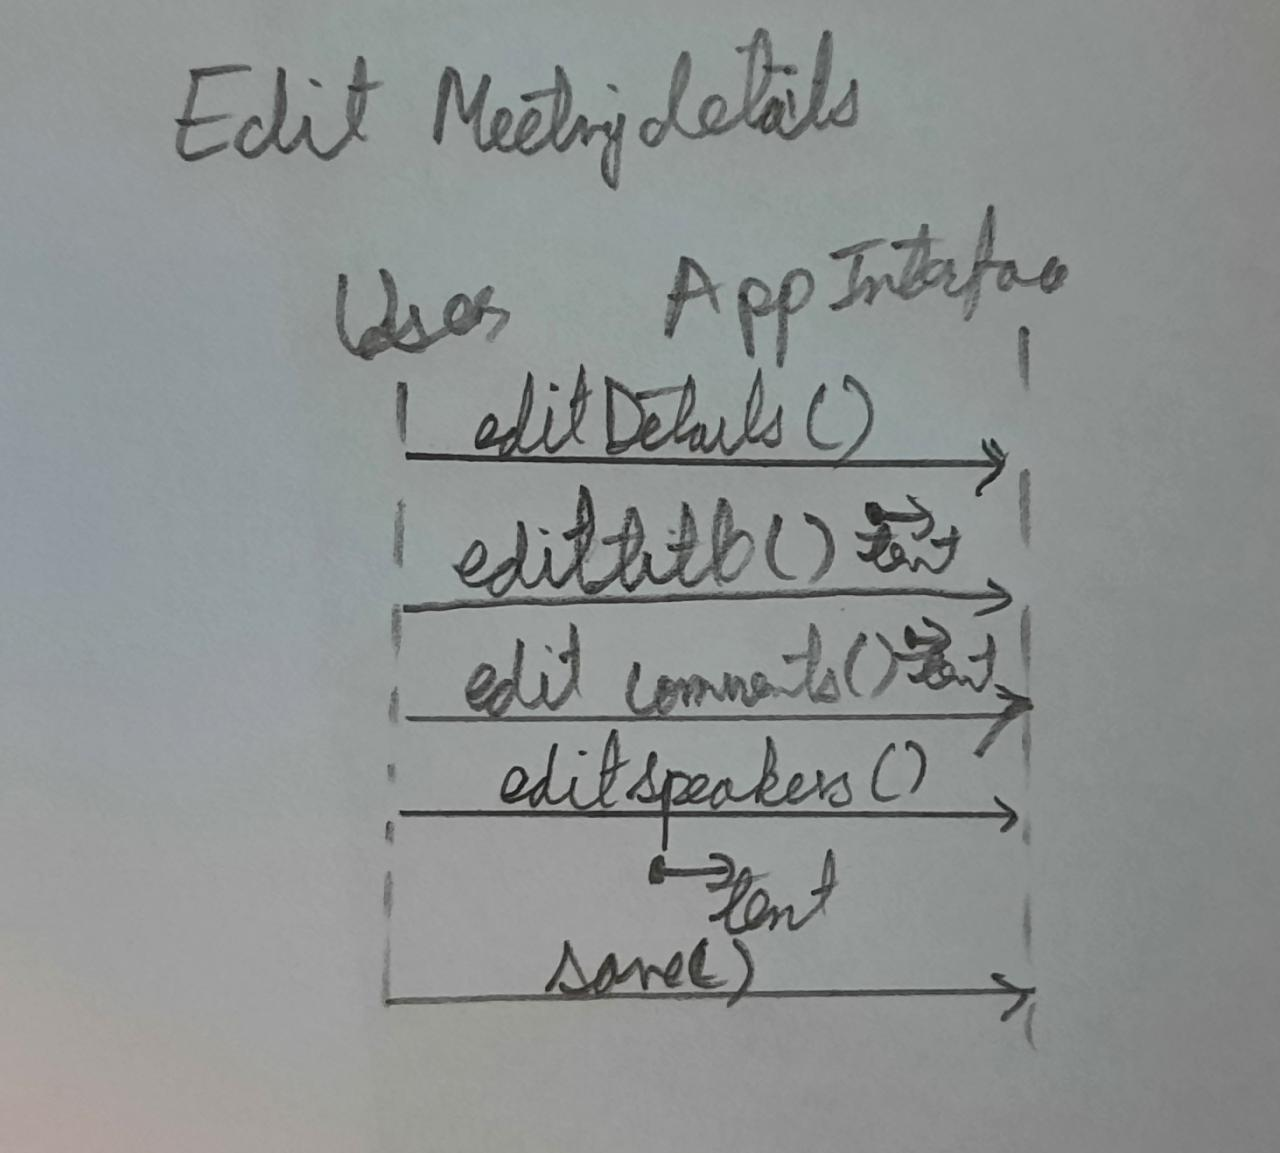 Edit Meeting details
User App Interface
editDetails()
edit title() text
edit comments() text
edit speakers()
text
save()